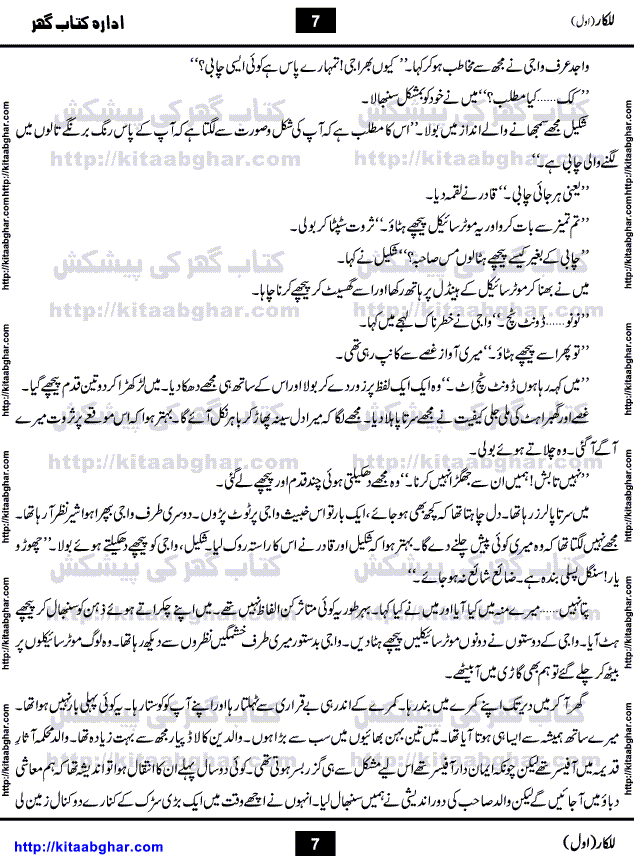 للکار (اول) 7 ادارہ کتاب گھر
واجد عرف واجی نے مجھ سے مخاطب ہو کر کہا۔ ’’کیوں بھرا جی! تمہارے پاس ہے کوئی ایسی چابی؟‘‘
’’کک...... کیا مطلب؟‘‘ میں نے خود کو بمشکل سنبھالا۔
شکیل مجھے سمجھانے والے انداز میں بولا۔ ’’اس کا مطلب ہے کہ آپ کی شکل و صورت سے لگتا ہے کہ آپ کے پاس رنگ برنگے تالوں میں
لگنے والی چابی ہے۔‘‘
’’یعنی ہر جائی چابی۔‘‘ قادر نے لقمہ دیا۔
’’تم تمیز سے بات کرو اور یہ موٹر سائیکل پیچھے ہٹاؤ۔‘‘ ثروت سٹپٹا کر بولی۔
’’چابی کے بغیر کیسے پیچھے ہٹا لوں مس صاحبہ؟‘‘ شکیل نے کہا۔
میں نے بھنا کر موٹر سائیکل کے ہینڈل پر ہاتھ رکھا اور اسے گھسیٹ کر پیچھے کرنا چاہا۔
’’نو نو...... ڈونٹ ٹچ۔‘‘ واجی نے خطرناک لہجے میں کہا۔
’’تو پھر اسے پیچھے ہٹاؤ۔‘‘ میری آواز غصے سے کانپ رہی تھی۔
’’میں کہہ رہا ہوں ڈونٹ ٹچ اِٹ۔‘‘ وہ ایک ایک لفظ پر زور دے کر بولا اور اس کے ساتھ ہی مجھے دھکا دیا۔ میں لڑکھڑا کر دو تین قدم پیچھے گیا۔
غصے اور گھبراہٹ کی ملی جلی کیفیت نے مجھے سرتاپا ہلا دیا۔ مجھے لگا کہ میرا دل سینہ پھاڑ کر باہر نکل آئے گا۔ بہتر ہوا کہ اس موقعے پر ثروت میرے
آگے آ گئی۔ وہ چلاتے ہوئے بولی۔
’’نہیں تابش! ہمیں ان سے جھگڑا نہیں کرنا۔‘‘ وہ مجھے دھکیلتی ہوئی چند قدم اور پیچھے لے گئی۔
میں سرتاپا لرز رہا تھا۔ دل چاہتا تھا کہ کچھ بھی ہو جائے، ایک بار تو اس خبیث واجی پر ٹوٹ پڑوں۔ دوسری طرف واجی بپھرا ہوا شیر نظر آ رہا تھا۔
مجھے نہیں لگتا تھا کہ وہ میری کوئی پیش چلنے دے گا۔ بہتر ہوا کہ شکیل اور قادر نے اس کا راستہ روک لیا۔ شکیل، واجی کو پیچھے دھکیلتے ہوئے بولا۔ ’’چھوڑو
یار! سنگل پسلی بندہ ہے۔ ضائع شائع نہ ہو جائے۔‘‘
پتا نہیں...... میرے منہ میں کیا آیا اور میں نے کیا کہا۔ بہرطور یہ کوئی متاثر کن الفاظ نہیں تھے۔ میں اپنے چکراتے ہوئے ذہن کو سنبھال کر پیچھے
ہٹ آیا۔ واجی کے دوستوں نے دونوں موٹر سائیکلیں پیچھے ہٹا دیں۔ واجی بدستور میری طرف خشمگیں نظروں سے دیکھ رہا تھا۔ وہ لوگ موٹر سائیکلوں پر
بیٹھ کر چلے گئے تو ہم بھی گاڑی میں آ بیٹھے۔
گھر آ کر میں دیر تک اپنے کمرے میں بند رہا۔ کمرے کے اندر ہی بے قراری سے ٹہلتا رہا اور اپنے آپ کو کوستا رہا۔ یہ کوئی پہلی بار نہیں ہوا تھا۔
میرے ساتھ ہمیشہ سے ایسا ہی ہوتا آیا تھا۔ میں تین بہن بھائیوں میں سب سے بڑا ہوں۔ والدین کا لاڈ پیار مجھ سے بہت زیادہ تھا۔ والد محکمہ آثارِ
قدیمہ میں آفیسر تھے لیکن چونکہ ایمان دار آفیسر تھے اس لیے مشکل سے ہی گزر بسر ہوتی تھی۔ کوئی دو سال پہلے ان کا انتقال ہوا تو اندیشہ تھا کہ ہم معاشی
دباؤ میں آ جائیں گے لیکن والد صاحب کی دور اندیشی نے ہمیں سنبھال لیا۔ انہوں نے اچھے وقت میں ایک بڑی سڑک کے کنارے دو کنال زمین لی
للکار (اول) 7 http://kitaabghar.com